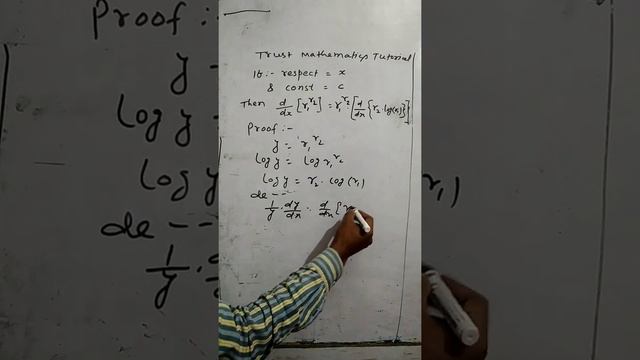 Trust Mathematics Tutorial
If :- respect = x
& const = c
Then d/dx [r₁^r₂] = r₁^r₂ · [d/dx {r₂ · log(x)}]
Proof :-
y = r₁^r₂
log y = log r₁^r₂
log y = r₂ · log (r₁)
de ---
1/y · dy/dx = d/dx {r